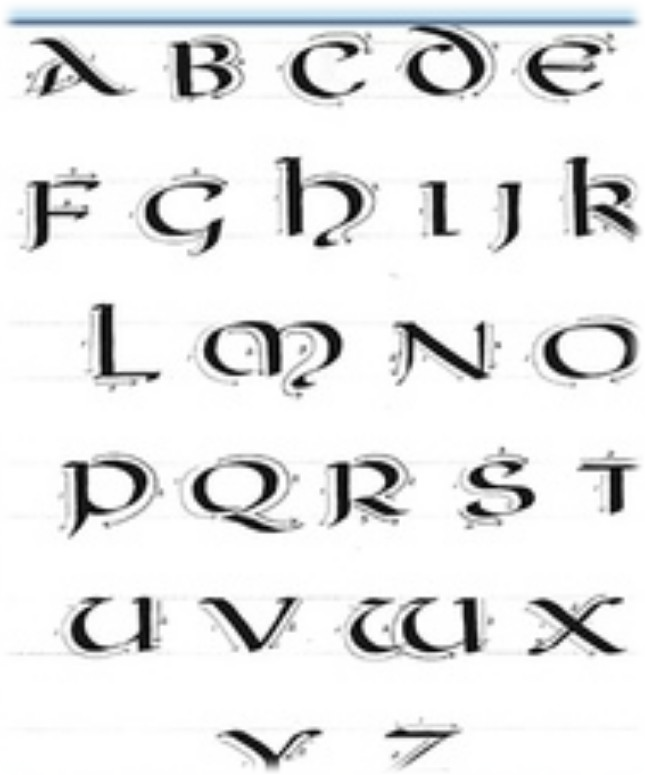 A B C D E
F G H I J K
L M N O
P Q R S T
U V W X
Y Z